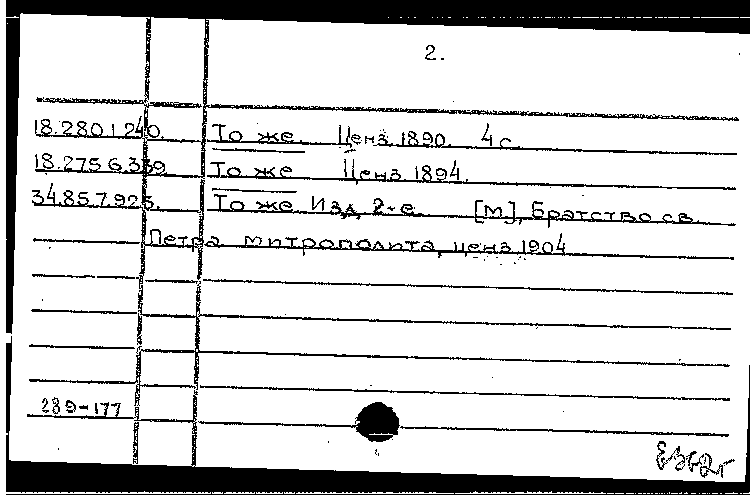 2.
18.280.1.240. То же. Ценз. 1890. 4 с.
18.275.6.339 То же Ценз 1894.
34.85.7.923. То же Изд. 2-е. [М.], Братство св.
Петра митрополита, ценз. 1904
289-177